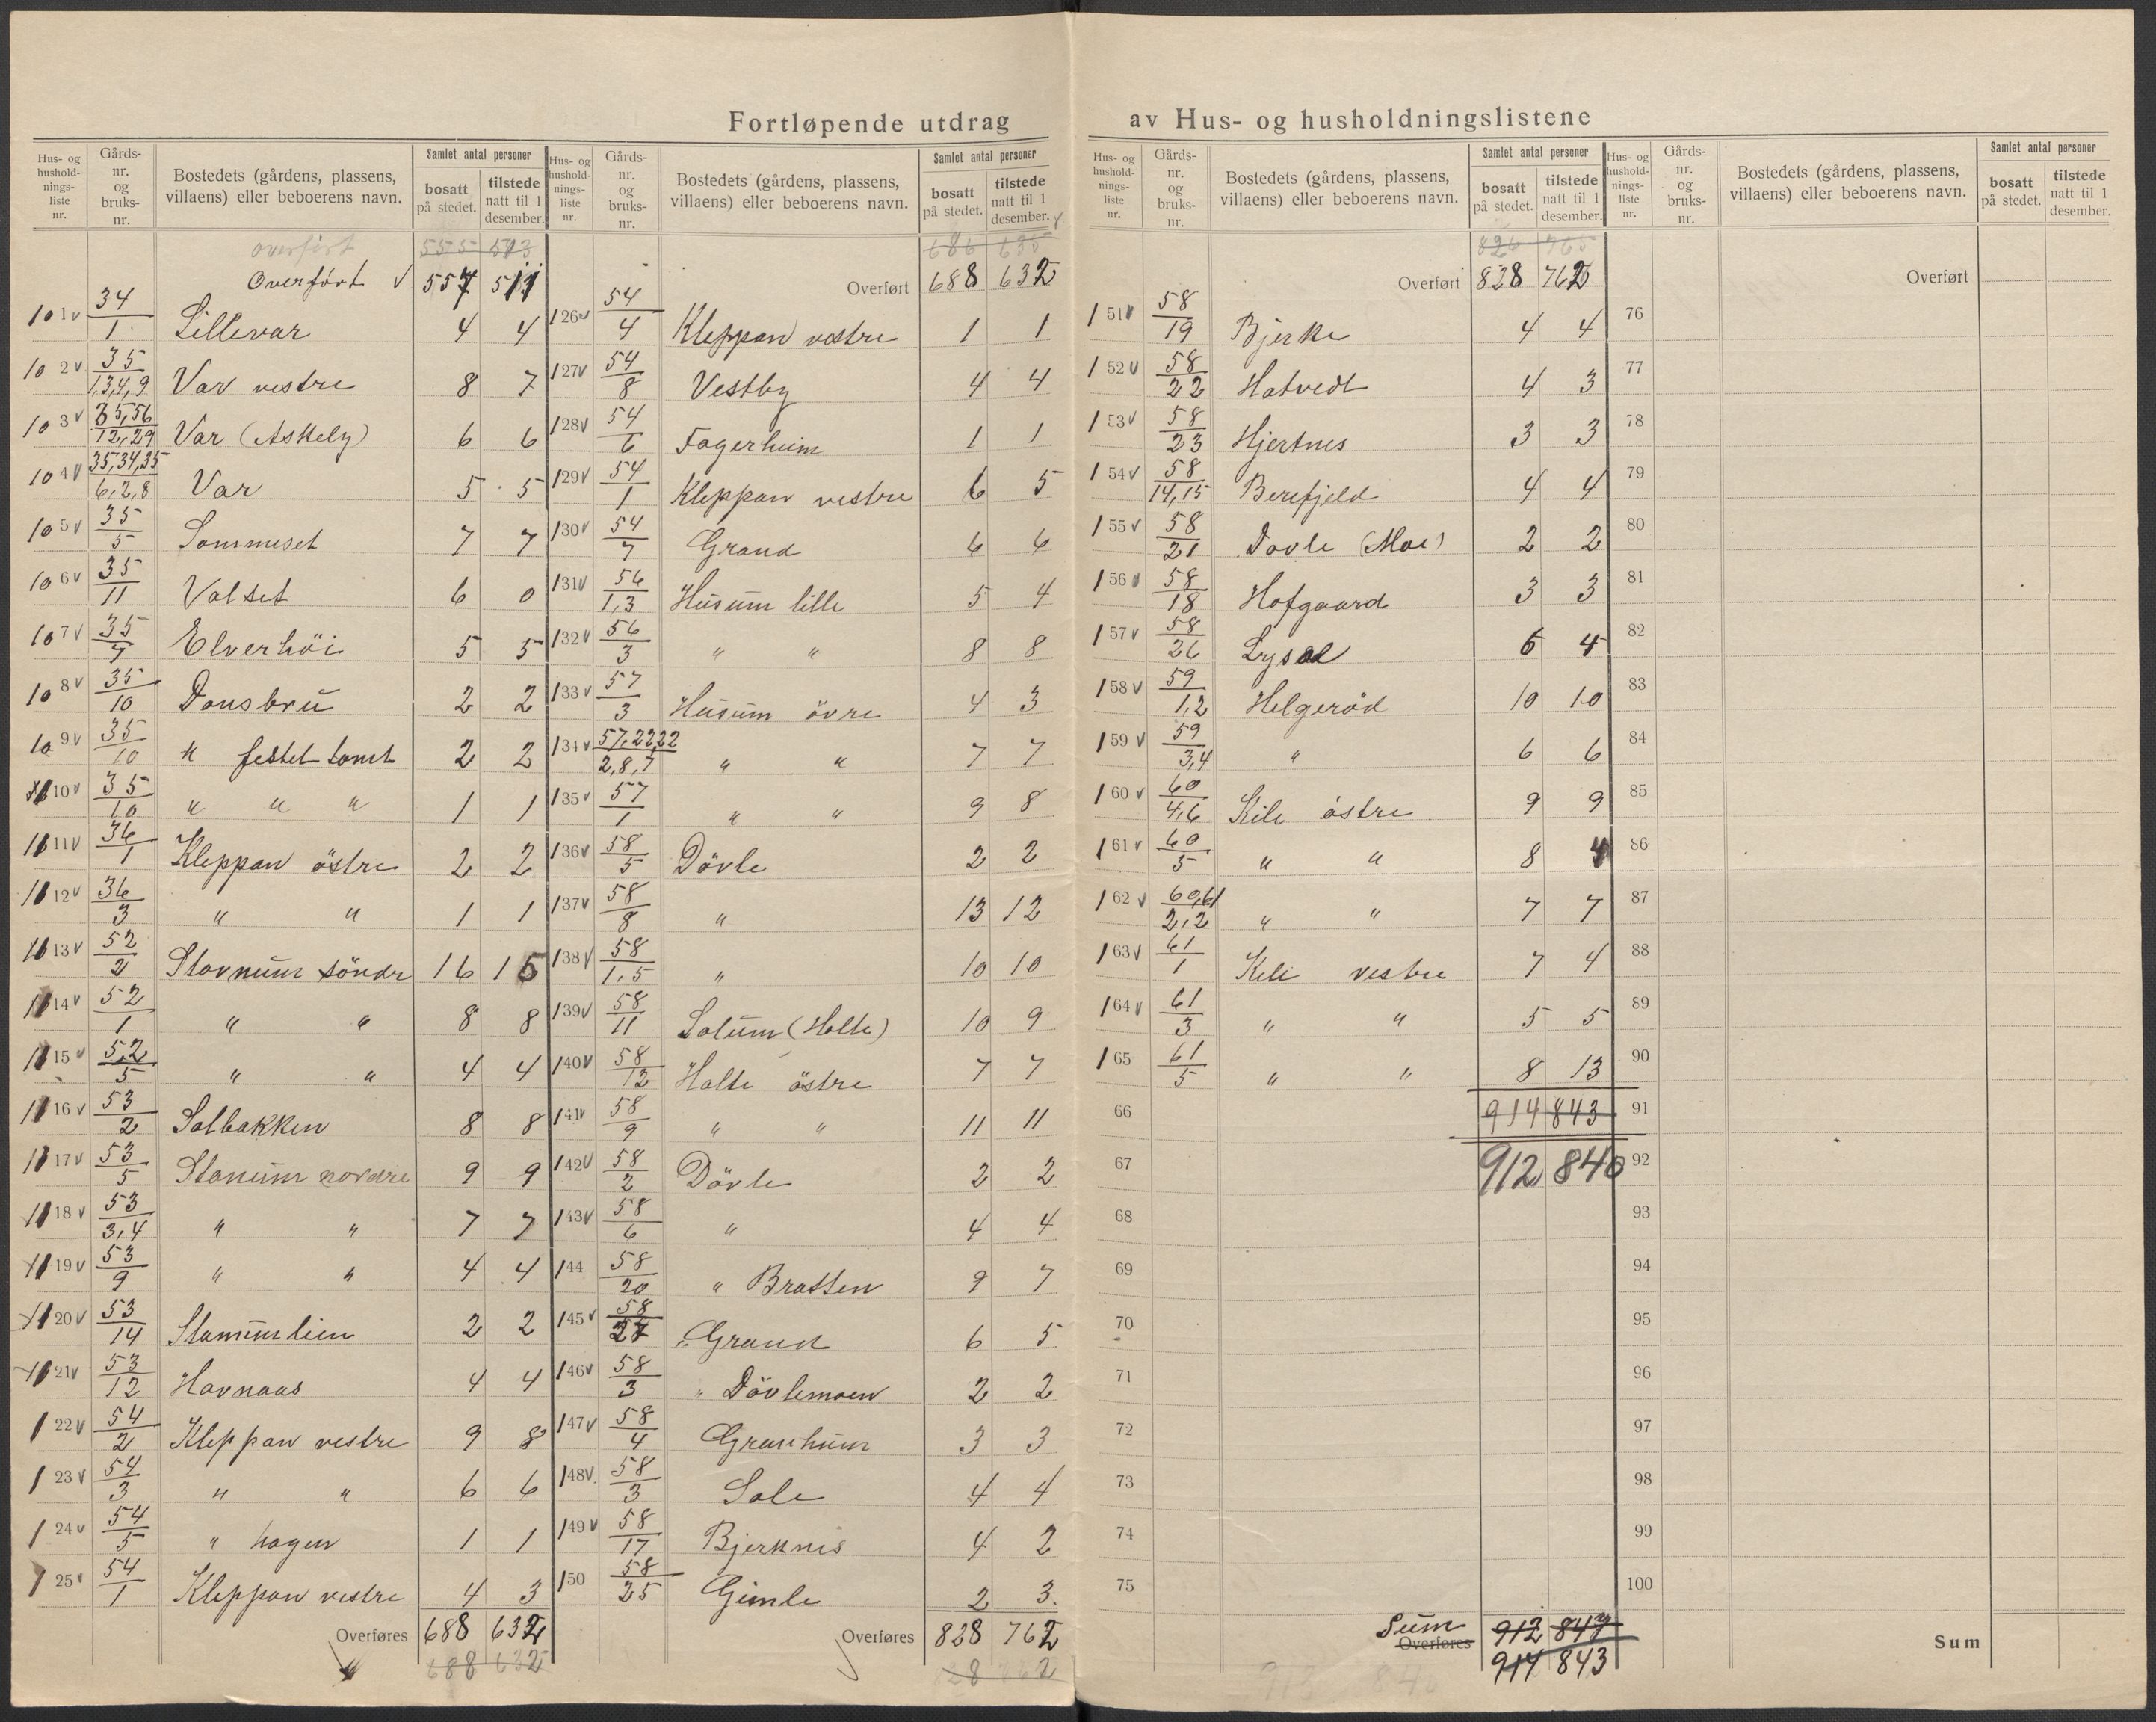 Fortløpende utdrag av Hus- og husholdningslistene
Hus- og hushold-nings-liste nr. | Gårds-nr. og bruks-nr. | Bostedets (gårdens, plassens, villaens) eller beboerens navn. | Samlet antal personer | bosatt på stedet. | tilstede natt til 1 desember.
overført 555 513
Overført 557 511
101 34/1 Lillevar 4 4
102 35/1,3,4,9 Var vestre 8 7
103 35,56/12,29 Var (Askely) 6 6
104 35,34,35/6,2,8 Var 5 5
105 35/5 Sommeset 7 7
106 35/11 Valset 6 0
107 35/7 Elverhöi 5 5
108 35/10 Dansbru 2 2
109 35/10 " festet tomt 2 2
110 35/10 " " " 1 1
111 36/1 Kleppan östre 2 2
112 36/3 " " 1 1
113 52/2 Stavnum söndr 16 15
114 52/1 " " 8 8
115 52/5 " " 4 4
116 53/2 Solbakken 8 8
117 53/5 Stanum nordre 9 9
118 53/3,4 " " 7 7
119 53/9 " " 4 4
120 53/14 Stanumlien 2 2
121 53/12 Havnaas 4 4
122 54/2 Kleppan vestre 9 8
123 54/3 " " 6 6
124 54/5 " hagen 1 1
125 54/1 Kleppan vestre 4 3
Overføres 688 632
688 632
Hus- og hushold-nings-liste nr. | Gårds-nr. og bruks-nr. | Bostedets (gårdens, plassens, villaens) eller beboerens navn. | Samlet antal personer | bosatt på stedet. | tilstede natt til 1 desember.
686 635
Overført 688 632
126 54/4 Kleppan vestre 1 1
127 54/8 Vestby 4 4
128 54/6 Fagerheim 1 1
129 54/1 Kleppan vestre 6 5
130 54/7 Grand 6 6
131 56/1,3 Husum lille 5 4
132 56/3 " " 8 8
133 57/3 Husum övre 4 3
134 57,22,22/2,8,7 " " 7 7
135 57/1 " " 9 8
136 58/5 Dövle 2 2
137 58/8 " 13 12
138 58/1,5 " 10 10
139 58/11 Solum (Holte) 10 9
140 58/12 Holte östre 7 7
141 58/9 " " 11 11
142 58/2 Dövle 2 2
143 58/6 " 4 4
144 58/20 " Bratten 9 7
145 58/27 Grand 6 5
146 58/3 " Dövlemoen 2 2
147 58/4 3 3
148 58/3 Sole 4 4
149 58/17 Bjerknes 4 2
150 58/25 Gimle 2 3
Overføres 828 762
Hus- og hushold-nings-liste nr. | Gårds-nr. og bruks-nr. | Bostedets (gårdens, plassens, villaens) eller beboerens navn. | Samlet antal personer | bosatt på stedet. | tilstede natt til 1 desember.
826 765
Overført 828 762
151 58/19 Bjerke 4 4
152 58/22 Hatvedt 4 3
153 58/23 Hjertnes 3 3
154 58/14,15 Berefjeld 4 4
155 58/21 Dovle (Moe) 2 2
156 58/18 Hofgaard 3 3
157 58/26 6 4
158 59/1,2 Helgeröd 10 10
159 59/3,4 " 6 6
160 60/4,6 Kile östre 9 9
161 60/5 " " 8 4
162 60,61/2,2 " " 7 7
163 61/1 Kile vestre 7 4
164 61/3 " " 5 5
165 61/5 " " 8 13
66 914 843
67 912 840
68
69
70
71
72
73
74
75
Sum Overføres 912 847
914 843
Hus- og hushold-nings-liste nr. | Gårds-nr. og bruks-nr. | Bostedets (gårdens, plassens, villaens) eller beboerens navn. | Samlet antal personer | bosatt på stedet. | tilstede natt til 1 desember.
Overført
76
77
78
79
80
81
82
83
84
85
86
87
88
89
90
91
92
93
94
95
96
97
98
99
100
Sum